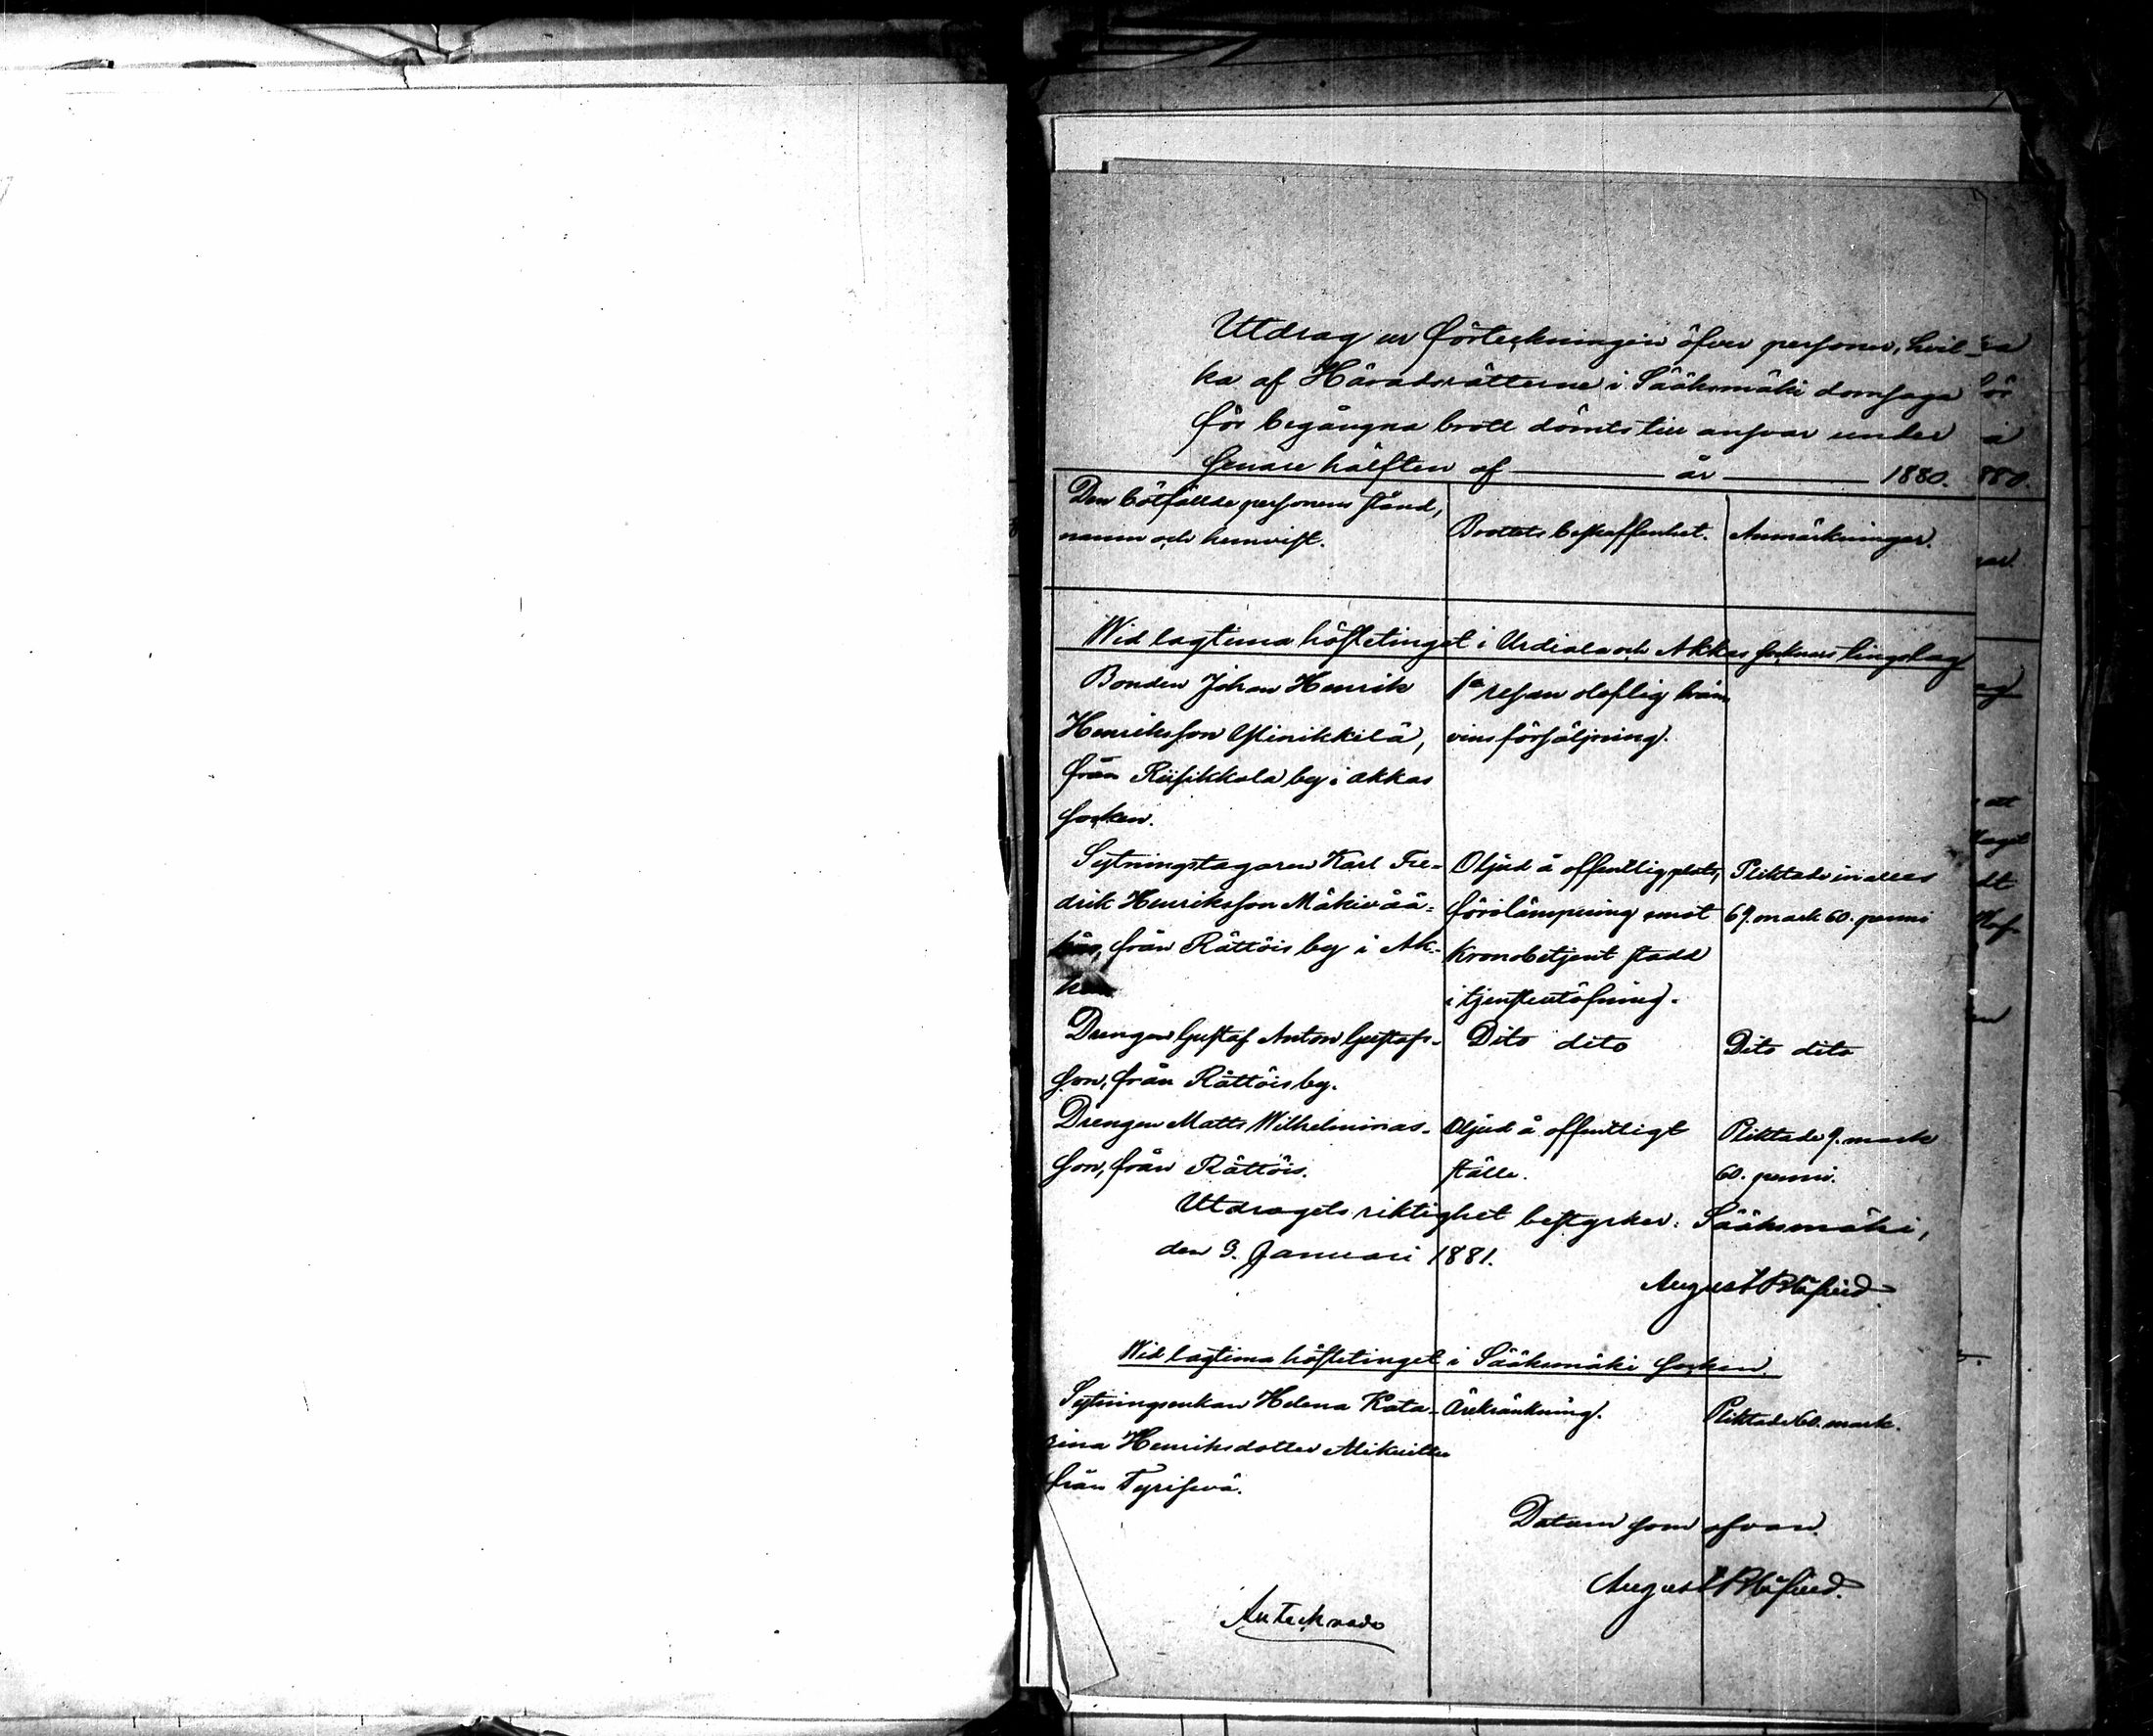 Utdrag ur förteckningen öfver personer, hvil-
ka af Häradsrätterne i Sääksmäki domsaga
för begångna brott dömts till ansvar under
senare hälften af ——— år ——— 1880.
Den bötfällde personens stånd,
namn och hemvist.
Brottets beskaffenhet.
Anmärkningar.
Wid lagtima hösttinget i Urdiala och Akkas socknars tingslag
Bonden Johan Henrik
Henriksson Ylinikkilä,
från Riisikkala by i Akkas
socken.
1a resan oloflig brän
vins försäljning.
Sytningstagaren Karl Fre-
drik Henriksson Mäkivää-
från Rättöis by i Ak-
Oljud å offentlig plats,
förolämpning emot
kronobetjent stadd
i tjensteutöfning.
Pliktade in alles
69. mark 60. penni
Drengen Gustaf Anton Gustafs-
son, från Rättöis by.
Dito dito
Dito dito
Drengen Matts Wilhelminas-
son, från Rättöis.
Oljud å offentligt
ställe.
Pliktade 9. mark
60. penni.
Utdragets riktighet bestyrker: Sääksmäki,
den 3. Januari 1881.
August
Wid lagtima hösttinget i Sääksmäki socken.
Sytningsenkan Helena Kata-
rina Henriksdotter
från Tyrisevä.
Ärekränkning.
Pliktade 60. mark.
Datum som ofvan.
August
Antecknade